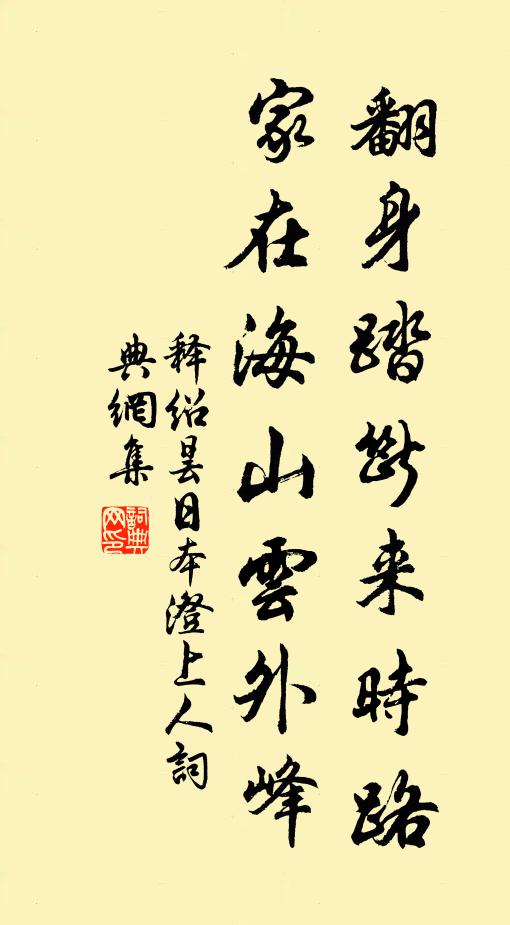 翻身踏断来時路
家在海山雲外峰
释绍昙日本澄上人詞
典網集
詞典网印